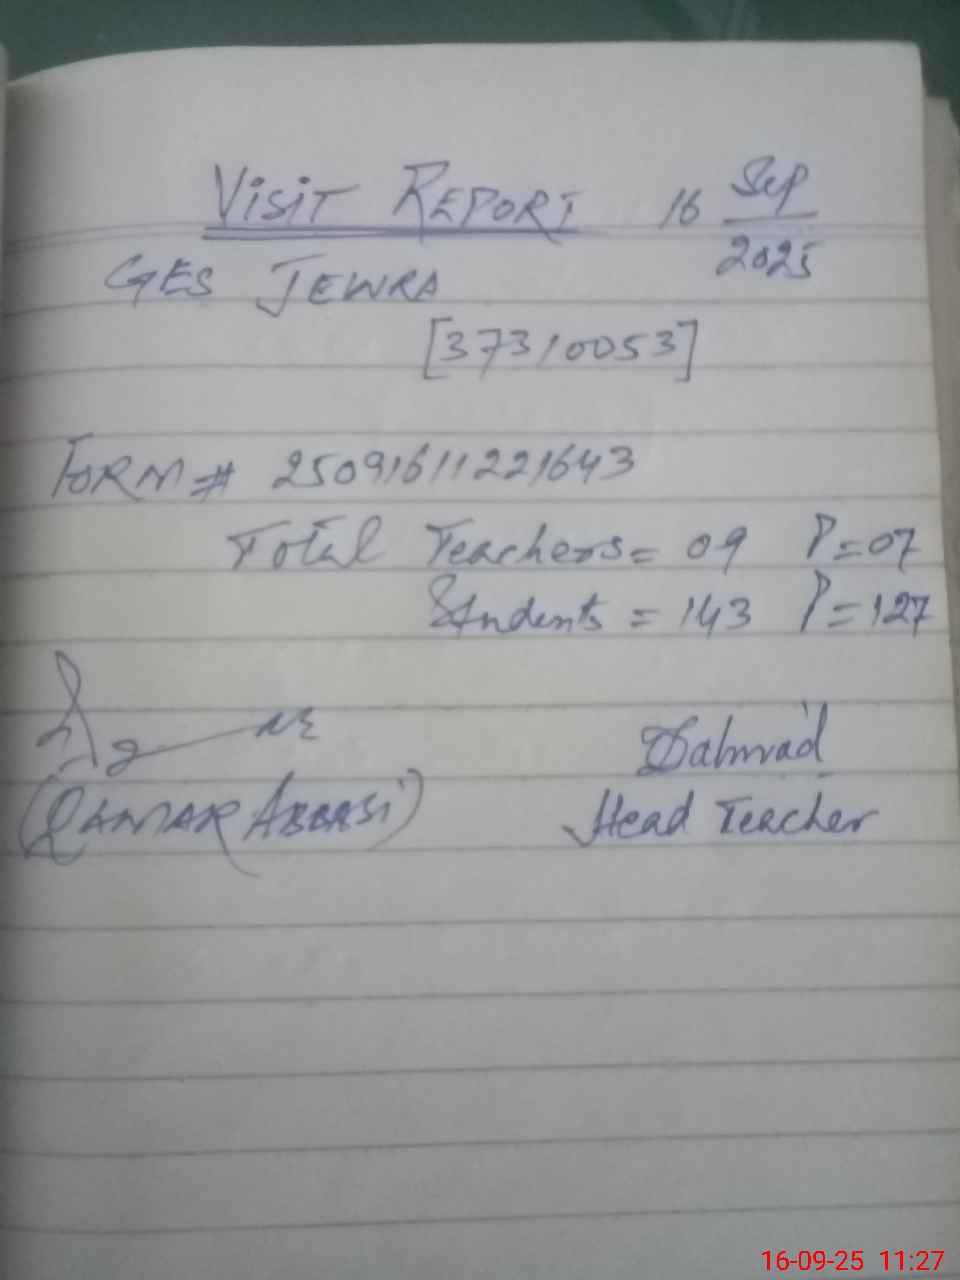 VISIT REPORT 16 Sep
2025
GES JEWRA
[37310053]
FORM # 25091611221643
Total Teachers = 09 P=07
Students = 143 P=127
(QAMAR ABBASI)
Head Teacher
16-09-25 11:27